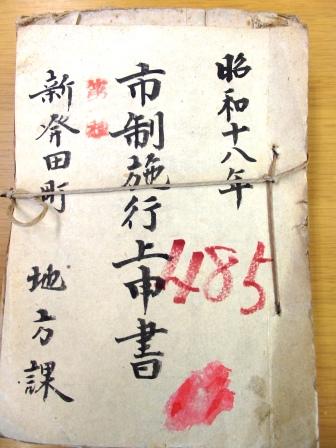 昭和十八年
市制施行上申書
新発田町 地方課
485